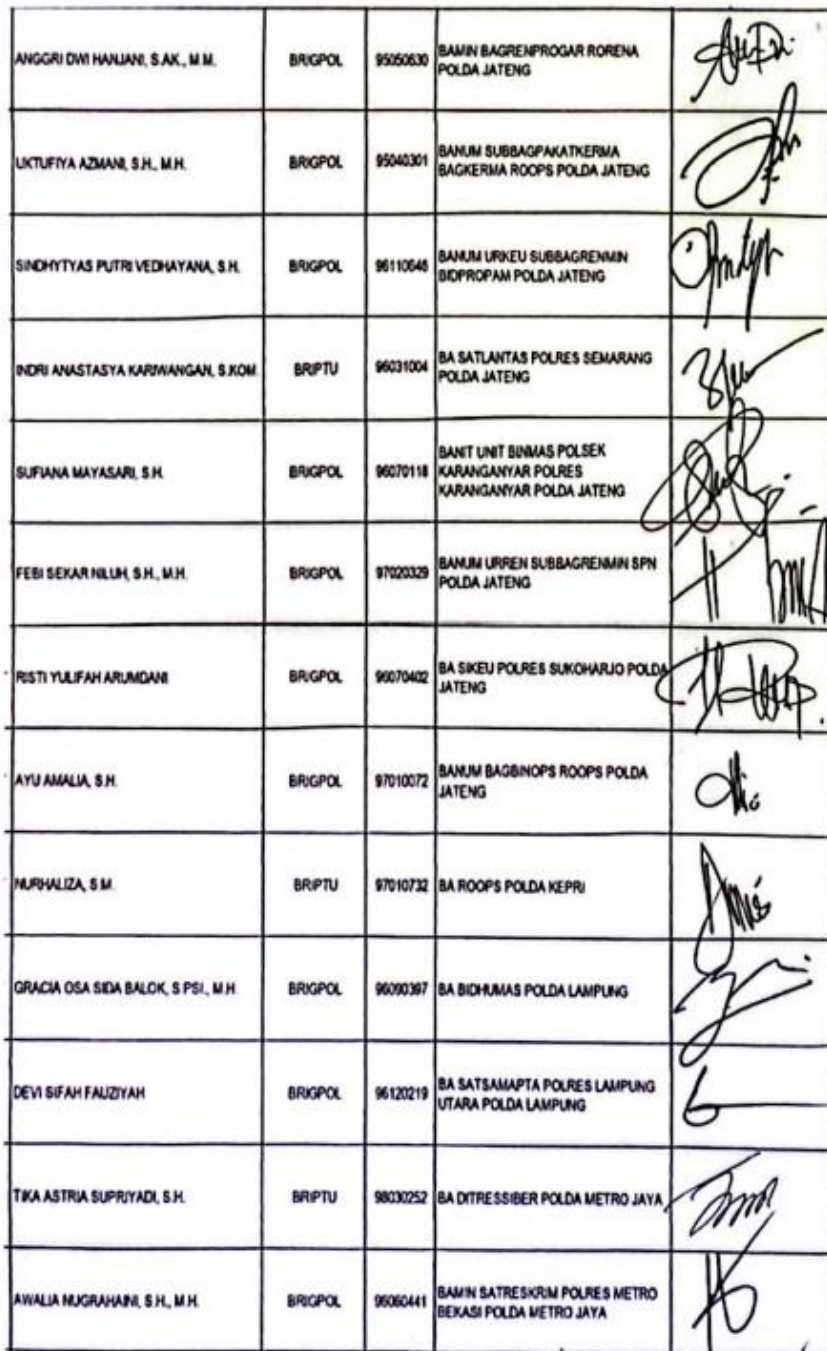 ANGGRI DWI HANJANI, S.AK., M.M. BRIGPOL 95050630 BAMIN BAGRENPROGAR RORENA
POLDA JATENG
UKTUFIYA AZMANI, S.H., M.H. BRIGPOL 95040301 BANUM SUBBAGPAKATKERMA
BAGKERMA ROOPS POLDA JATENG
SINDHYTYAS PUTRI VEDHAYANA, S.H. BRIGPOL 96110648 BANUM URKEU SUBBAGRENMIN
BIDPROPAM POLDA JATENG
INDRI ANASTASYA KARIWANGAN, S.KOM BRIPTU 96031004 BA SATLANTAS POLRES SEMARANG
POLDA JATENG
SUFIANA MAYASARI, S.H. BRIGPOL 96070118 BANIT UNIT BINMAS POLSEK
KARANGANYAR POLRES
KARANGANYAR POLDA JATENG
FEBI SEKAR NILUH, S.H., M.H. BRIGPOL 97020329 BANUM URREN SUBBAGRENMIN SPN
POLDA JATENG
RISTI YULIFAH ARUMDANI BRIGPOL 96070402 BA SIKEU POLRES SUKOHARJO POLDA
JATENG
AYU AMALIA, S.H. BRIGPOL 97010072 BANUM BAGBINOPS ROOPS POLDA
JATENG
NURHALIZA, S.M. BRIPTU 97010732 BA ROOPS POLDA KEPRI
GRACIA OSA SIDA BALOK, S.PSI., M.H. BRIGPOL 96090397 BA BIDHUMAS POLDA LAMPUNG
DEVI SIFAH FAUZIYAH BRIGPOL 96120219 BA SATSAMAPTA POLRES LAMPUNG
UTARA POLDA LAMPUNG
TIKA ASTRIA SUPRIYADI, S.H. BRIPTU 98030252 BA DITRESSIBER POLDA METRO JAYA
AWALIA NUGRAHAINI, S.H., M.H. BRIGPOL 96060441 BAMIN SATRESKRIM POLRES METRO
BEKASI POLDA METRO JAYA